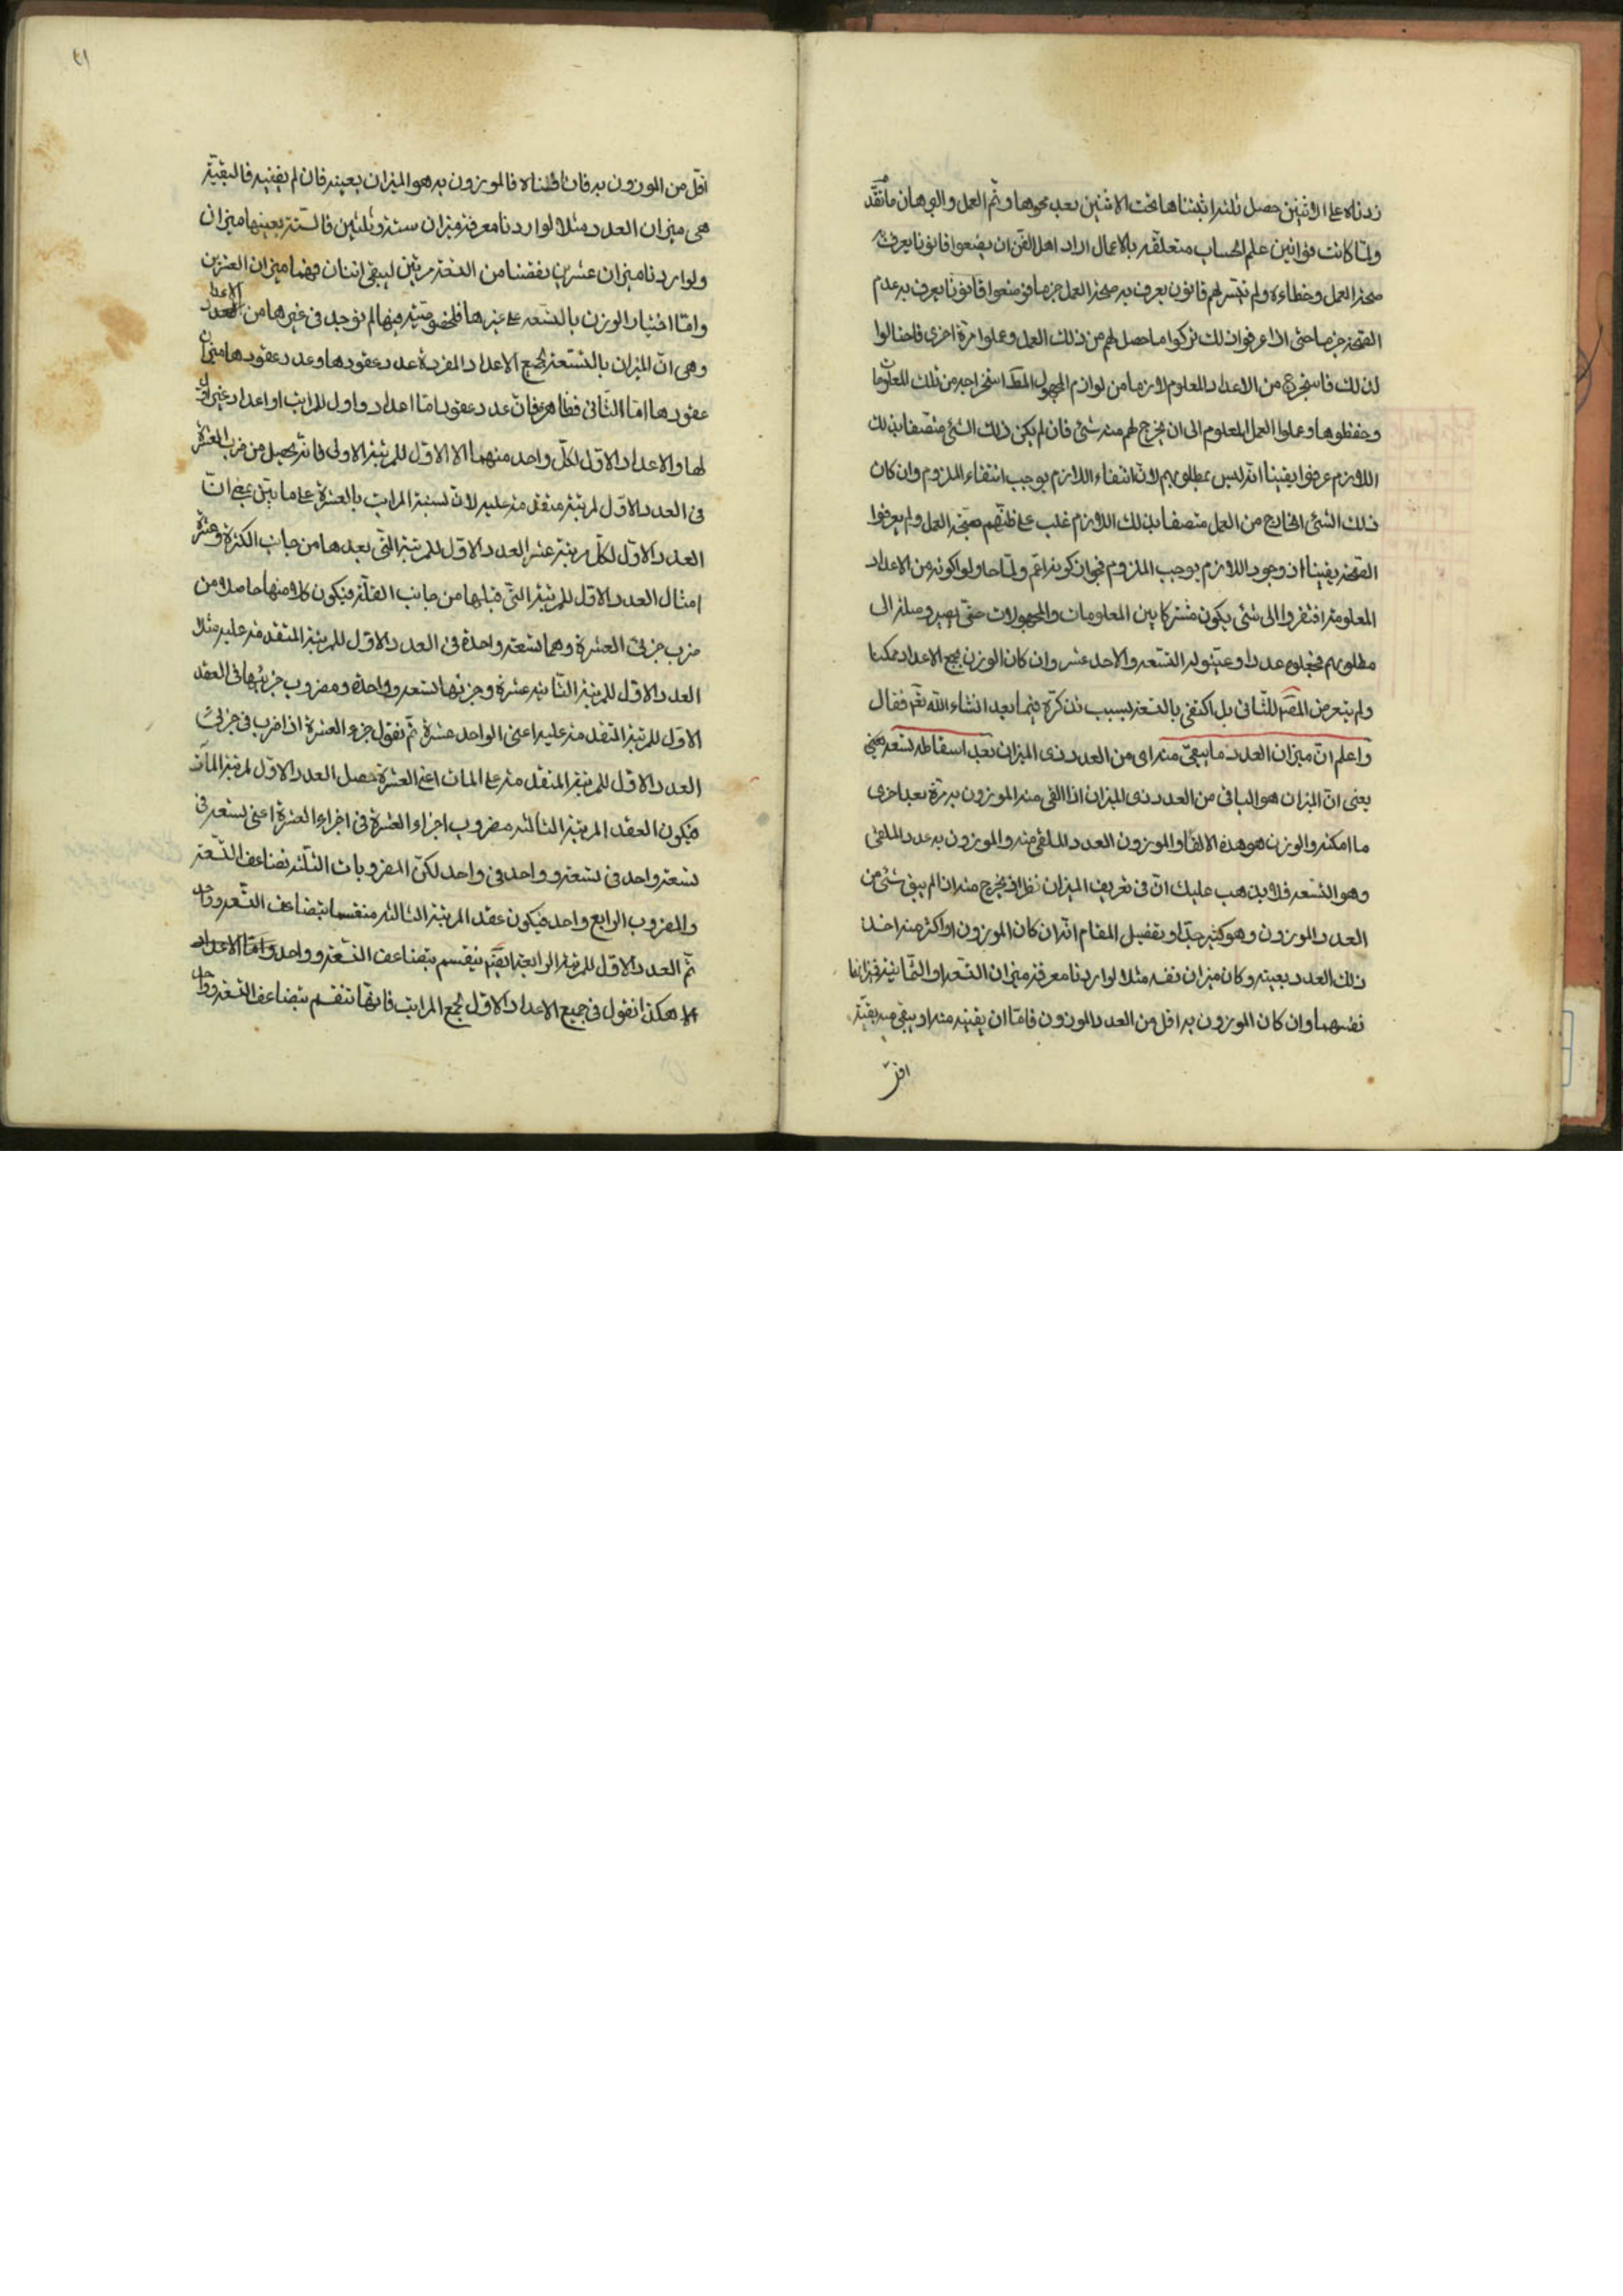 زدناه على الاثنين حصل ثلثة اثبتناها تحت الاثنين بعد محوها وتم العمل والبرهان ما تقدم
ولما كانت قوانين علم الحساب متعلقة بالاعمال اراد اهل الفن ان يضعوا قانونا يعرف به
صحة العمل وخطاءه ولم تتيسر لهم قانون يعرف به صحة العمل جزما فوضعوا قانونا يعرف به عدم
الصحة جزما حتى اذا عرفوا ذلك تركوا ما حصل لهم من ذلك العمل وعملوا مرة اخرى فاحتالوا
لذلك فاستخرج من الاعداد المعلوم لازما من لوازم المجهول المط استخراجه من تلك المعلومات
وحفظوها وعملوا العمل المعلوم الى ان يخرج لهم منه شئ فان لم يكن ذلك الشئ متصفا بذلك
اللازم عرفوا يقينا انه ليس بمطلوبهم لان انتفاء اللازم يوجب انتفاء الملزوم وان كان
ذلك الشئ الخارج من العمل متصفا بذلك اللازم غلب على ظنهم صحة العمل ولم يعرفوا
الصحة يقينا اذ وجود اللازم يوجب الملزوم لجواز كونه اعم ولما حاولوا كونه من الاعداد
المعلومة افتقروا الى شئ يكون مشتركا بين المعلومات والمجهولات حتى يصير وصلة الى
مطلوبهم فجعلوه عددا وعينوا له التسعة والاحد عشر وان كان الوزن بجميع الاعداد ممكنا
ولم يتعرض المص للثانى بل اكتفى بالتسعة لسبب نذكره فيما بعد انشاء الله تع فقال
واعلم ان ميزان العدد ما يبقى منه اى من العدد ذى الميزان بعد اسقاطه تسعة يعنى
يعنى ان الميزان هو الباقى من العدد ذى الميزان اذا القى منه الموزون به مرة بعد اخرى
ما امكنه والوزن هو هذه الالقاء والموزون العدد الملقى منه والموزون به عدد الملقى
وهو التسعة فلا يذهب عليك ان فى تعريف الميزان نظرا اذ يخرج منه ان لم يبق شئ من
العدد الموزون وهو كثير جدا وتفصيل المقام انه ان كان الموزون او اكثر منه اخذ
ذلك العدد بعينه وكان ميزان نفسه مثلا لو اردنا معرفة ميزان التسعة او الثمانية فميزانهما
نفسهما وان كان الموزون به اقل من العدد الموزون فاما ان يفنيه منه او يبقى منه بقية
اقل
٤١
اقل من الموزون به فان افناه فالموزون به هو الميزان بعينه فان لم يفنيه فالبقية
هى ميزان العدد مثلا لو اردنا معرفة ميزان ستة وثلثين فالتسعة بعينها ميزان
ولو اردنا ميزان عشرين نقصنا من التسعة مرتين ليبقى اثنان فهما ميزان العشرين
واما اختيار الوزن بالتسعة على غيرها فلخصوصية فيها لم توجد فى غيرها من الاعداد
وهى ان الميزان بالتسعة لجميع الاعداد المفردة عدد عقودها وعدد عقودها ميزان
عقودها اما الثانى فظاهر فان عدد عقود اما اعداد واول المراتب او اعداد غير اول
لها والاعداد الاول لكل واحد منهما الا الاول للمرتبة الاولى فانه يحصل من ضرب العشرة
فى العدد الاول لمرتبة متقدمة عليه لان نسبة المراتب بالعشرة على ما بين بمعنى ان
العدد الاول لكل مرتبة عشر العدد الاول للمرتبة التى بعدها من جانب الكثرة وعشرة
امثال العدد الاول للمرتبة التى قبلها من جانب القلة فيكون كلا منها حاصلا من
ضرب جزئى العشرة وهما تسعة واحدة فى العدد الاول للمرتبة المتقدمة عليه مثلا
العدد الاول للمرتبة الثانية عشرة وجزئها تسعة وواحدة ومضروب جزئيها فى العقد
الاول للمرتبة المتقدمة عليه اعنى الواحد عشرة ثم نقول جزء العشرة اذا ضرب فى جزئى
العدد الاول للمرتبة المتقدمة على المات اعنى العشرة حصل العدد الاول لمرتبة المآت
فيكون العقد المرتبة الثالثة مضروب اجزاء العشرة فى اجزاء العشرة اعنى تسعة فى
تسعة وواحد فى تسعة وواحد فى واحد لكن المضروبات الثلثة تضاعف التسعة
والمضروب الرابع واحد فيكون عقد المرتبة الثالثة منقسما بتضاعف التسعة وواحد
ثم العدد الاول للمرتبة الرابعة ايضا ينقسم بتضاعف التسعة وواحد واما الاعداد
الا هكذا نقول فى جميع الاعداد الاول لجميع المراتب فانها تنقسم بتضاعف التسعة وواحد